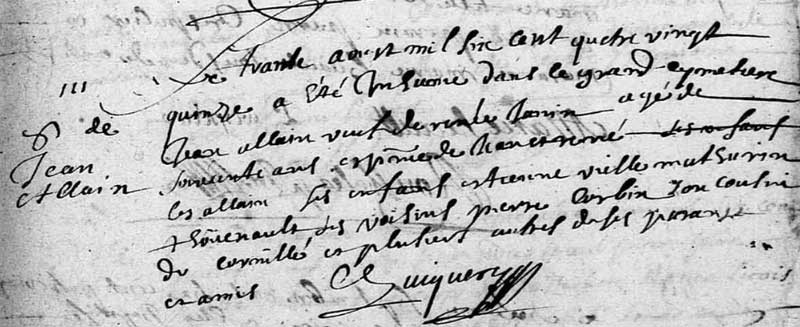 Le trante aoust mil six cent quatre vingt
quinze a été Inhumé dans le grand cymetiere
S de Jean allain veuf de renée Janin agé de
Jean soixante ans en pnce de Jean et rené des enfans
Allain les allain ses enfans estienne vielle mathurin
thouenault des voisins pierre Corbin son cousin
de cornillé et plusieurs autres de ses parans
et amis Guiquery